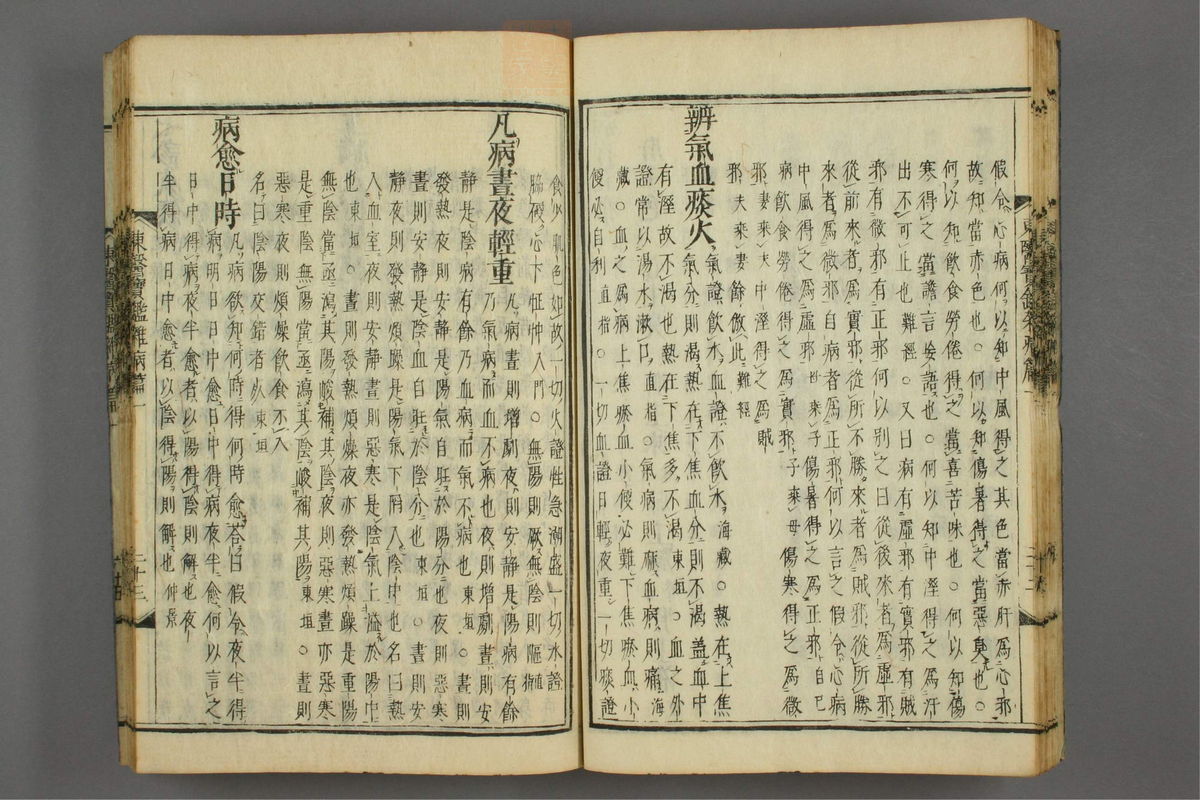 假令心病何以知中風得之其色當赤肝爲心邪
故知當赤色也○何以知傷暑得之當惡臭也○
何以知飲食勞倦得之當喜苦味也○何以知傷
寒得之當譫言妄語也○何以知中溼得之爲汗
出不可止也難經○又曰病有虛邪有實邪有賊
邪有微邪有正邪何以別之曰從後來者爲虛邪
從前來者爲實邪從所不勝來者爲賊邪從所勝
來者爲微邪自病者爲正邪何以言之假令心病
中風得之爲虛邪也來子傷暑得之爲正邪自己
病飲食勞倦得之爲實邪子乘母傷寒得之爲微
邪妻來夫中溼得之爲賊
邪夫乘妻餘倣此難經
辨氣血痰火氣證飲水血證不飲水海藏○熱在上焦
氣分則渴熱在下焦血分則不渴蓋血中
有溼故不渴也熱在下焦多不渴東垣○血之外
證常以湯水漱口直指○氣病則麻血病則痛海
藏○血之爲病上焦瘀血小便必難下焦瘀血小
便必自利直指○一切血證日輕夜重一切痰證
食少肌色如故一切火證性急潮盛一切水證
脇硬心下怔忡入門○無陽則厥無陰則嘔直指
凡病晝夜輕重凡病晝則增劇夜則安靜是陽病有餘
乃氣病而血不病也夜則增劇晝則安
靜是陰病有餘乃血病而氣不病也東垣○晝則
發熱夜則安靜是陽氣自旺於陽分也夜則惡寒
晝則安靜是陰血自旺於陰分也東垣○晝則安
靜夜則發熱煩躁是陽氣下陷入陰中也名曰熱
入血室夜則安靜晝則惡寒是陰氣上溢於陽中
也東垣○晝則發熱煩燥夜亦發熱煩躁是重陽
無陰當亟瀉其陽峻補其陰夜則惡寒晝亦惡寒
是重陰無陽當亟瀉其陰峻補其陽東垣○晝則
惡寒夜則煩燥飲食不入
名曰陰陽交錯者死東垣
病愈日時凡病欲知何時得何時愈荅曰假令夜半得
病明日日中愈日中得病夜半愈何以言之
日中得病夜半愈者以陽得陰則解也夜
半得病日中愈者以陰得陽則解也仲景
東醫寶鑑雜病篇一
二十三
東醫寶鑑雜病篇一